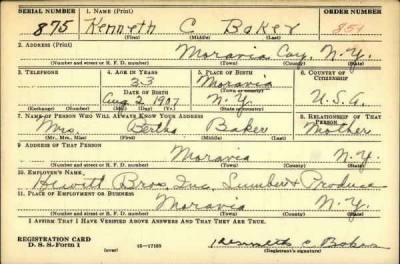 SERIAL NUMBER 1. NAME (Print) ORDER NUMBER
875 Kenneth C Baker 851
(First) (Middle) (Last)
2. ADDRESS (Print)
Moravia Cay. N.Y.
(Number and street or R. F. D. number) (Town) (County) (State)
3. TELEPHONE 4. AGE IN YEARS 5. PLACE OF BIRTH 6. COUNTRY OF CITIZENSHIP
33 Moravia
DATE OF BIRTH (Town or county)
Aug 2, 1907 N.Y. U.S.A.
(Exchange) (Number) (Mo.) (Day) (Yr.) (State or country)
7. NAME OF PERSON WHO WILL ALWAYS KNOW YOUR ADDRESS 8. RELATIONSHIP OF THAT PERSON
Mrs. Bertha Baker Mother
(Mr., Mrs., Miss) (First) (Middle) (Last)
9. ADDRESS OF THAT PERSON
Moravia N.Y.
(Number and street or R. F. D. number) (Town) (County) (State)
10. EMPLOYER'S NAME
Bros. Inc. Lumber & Produce
11. PLACE OF EMPLOYMENT OR BUSINESS
Moravia N.Y.
(Number and street or R. F. D. number) (Town) (County) (State)
I AFFIRM THAT I HAVE VERIFIED ABOVE ANSWERS AND THAT THEY ARE TRUE.
REGISTRATION CARD
D. S. S. Form 1 (over) 16—17105 Kenneth C. Baker
(Registrant's signature)